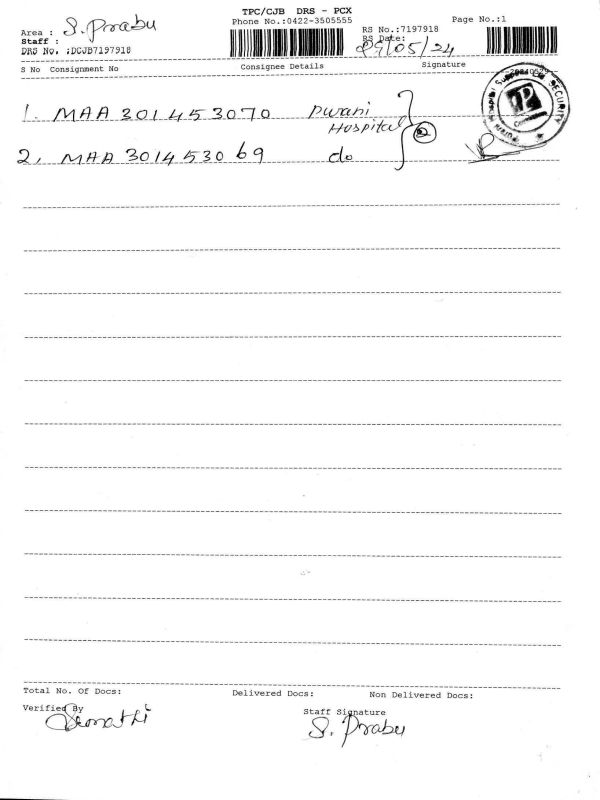 TPC/CJB DRS - PCX
Phone No.:0422-3505555
Page No.:1
Area : S. Prabu
Staff :
DRS No. :DCJB7197918
RS No.:7197918
RS Date: 29/05/24
S No Consignment No Consignee Details Signature
1. MAA 301453070 Purani
Hospital
2
2, MAA 301453069 do
SECURITY
Total No. Of Docs: Delivered Docs: Non Delivered Docs:
Verified By
Staff Signature
S. Prabu